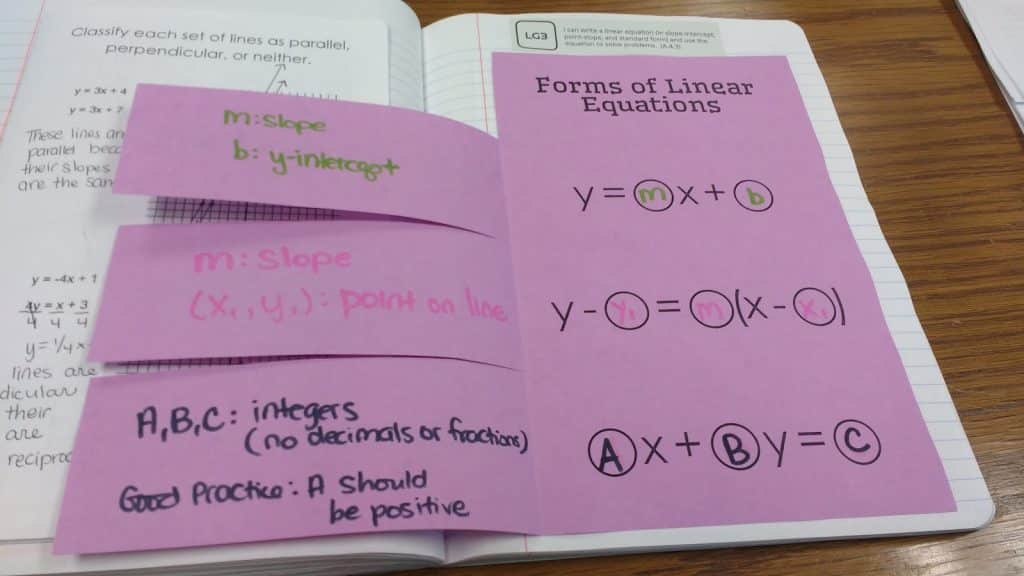 Classify each set of lines as parallel,
perpendicular, or neither.
y = 3x + 4
y = 3x + 7
These lines are
parallel bec
their slopes
are the sam
y = -4x + 1
4y = x + 3
4 4 4
y = 1/4 x
lines are
dicular
their
are
reciproc
m: slope
b: y-intercept
m: slope
(x₁, y₁): point on line
A,B,C: integers
(no decimals or fractions)
Good Practice: A should
be positive
LG3
I can write a linear equation (in slope-intercept,
point-slope, and standard form) and use the
equation to solve problems. (A.4.3)
Forms of Linear
Equations
y = m x + b
y - y₁ = m (x - x₁)
A x + B y = C